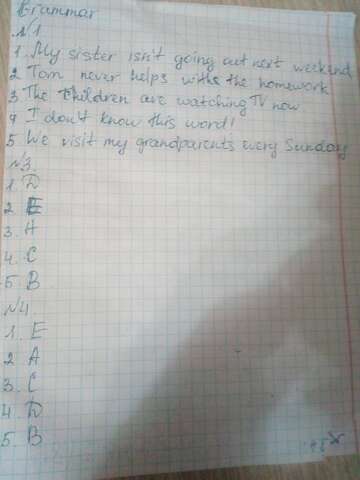 Grammar
№1
1. My sister isn't going out next weekend
2 Tom never helps with the homework
3 The children are watching TV now
4 I don't know this word!
5 We visit my grandparents every Sunday
№3.
1. D
2 E
3. A
4. C
5. B
№4
1. E
2 A
3. C
4. D
5. B